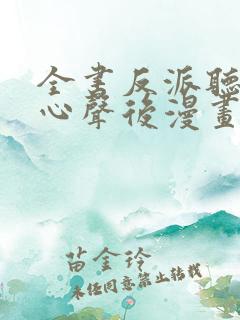 全書反派聽
心聲後漫畫
苗金玲
未經同意禁止轉載